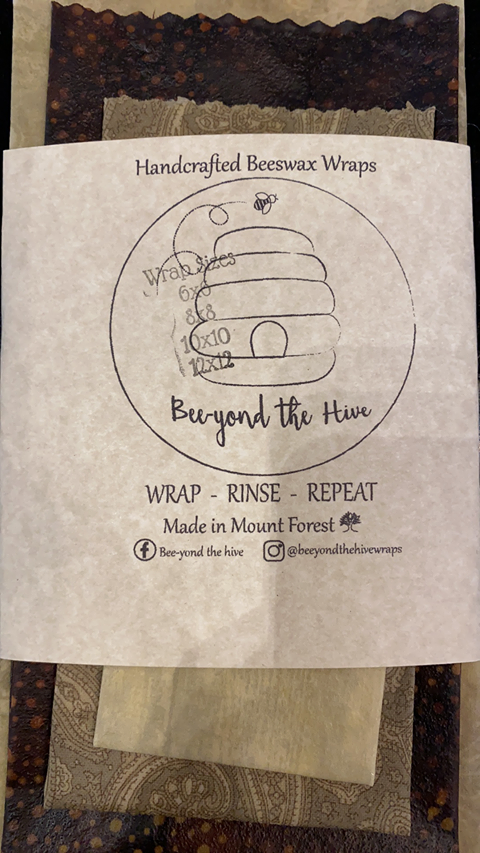 Handcrafted Beeswax Wraps
Wrap Sizes
6x6
8x8
10x10
12x12
Bee-yond the Hive
WRAP - RINSE - REPEAT
Made in Mount Forest
Bee-yond the hive @beeyondthehivewraps